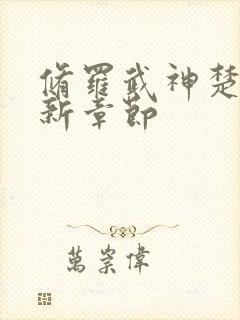 脩羅武神楚
新章節
萬崇偉